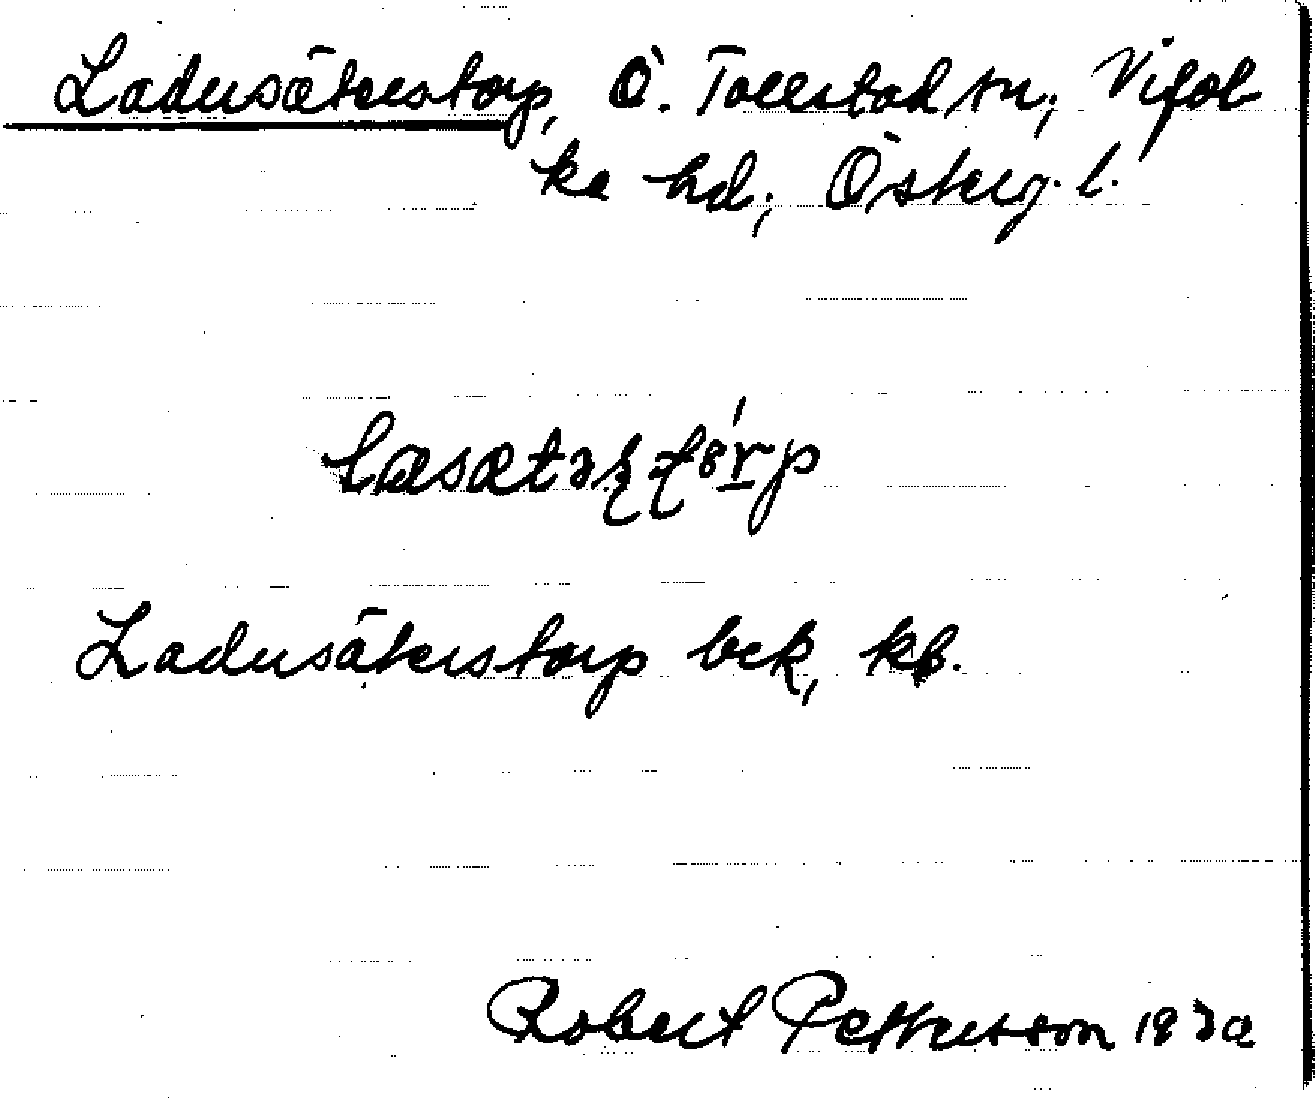 Ladusäterstorp, Ö. Tollstad sn, Vifol
ka hd; Österg. l.
Ladusäterstorp bck, kb.
Robert Pettersson